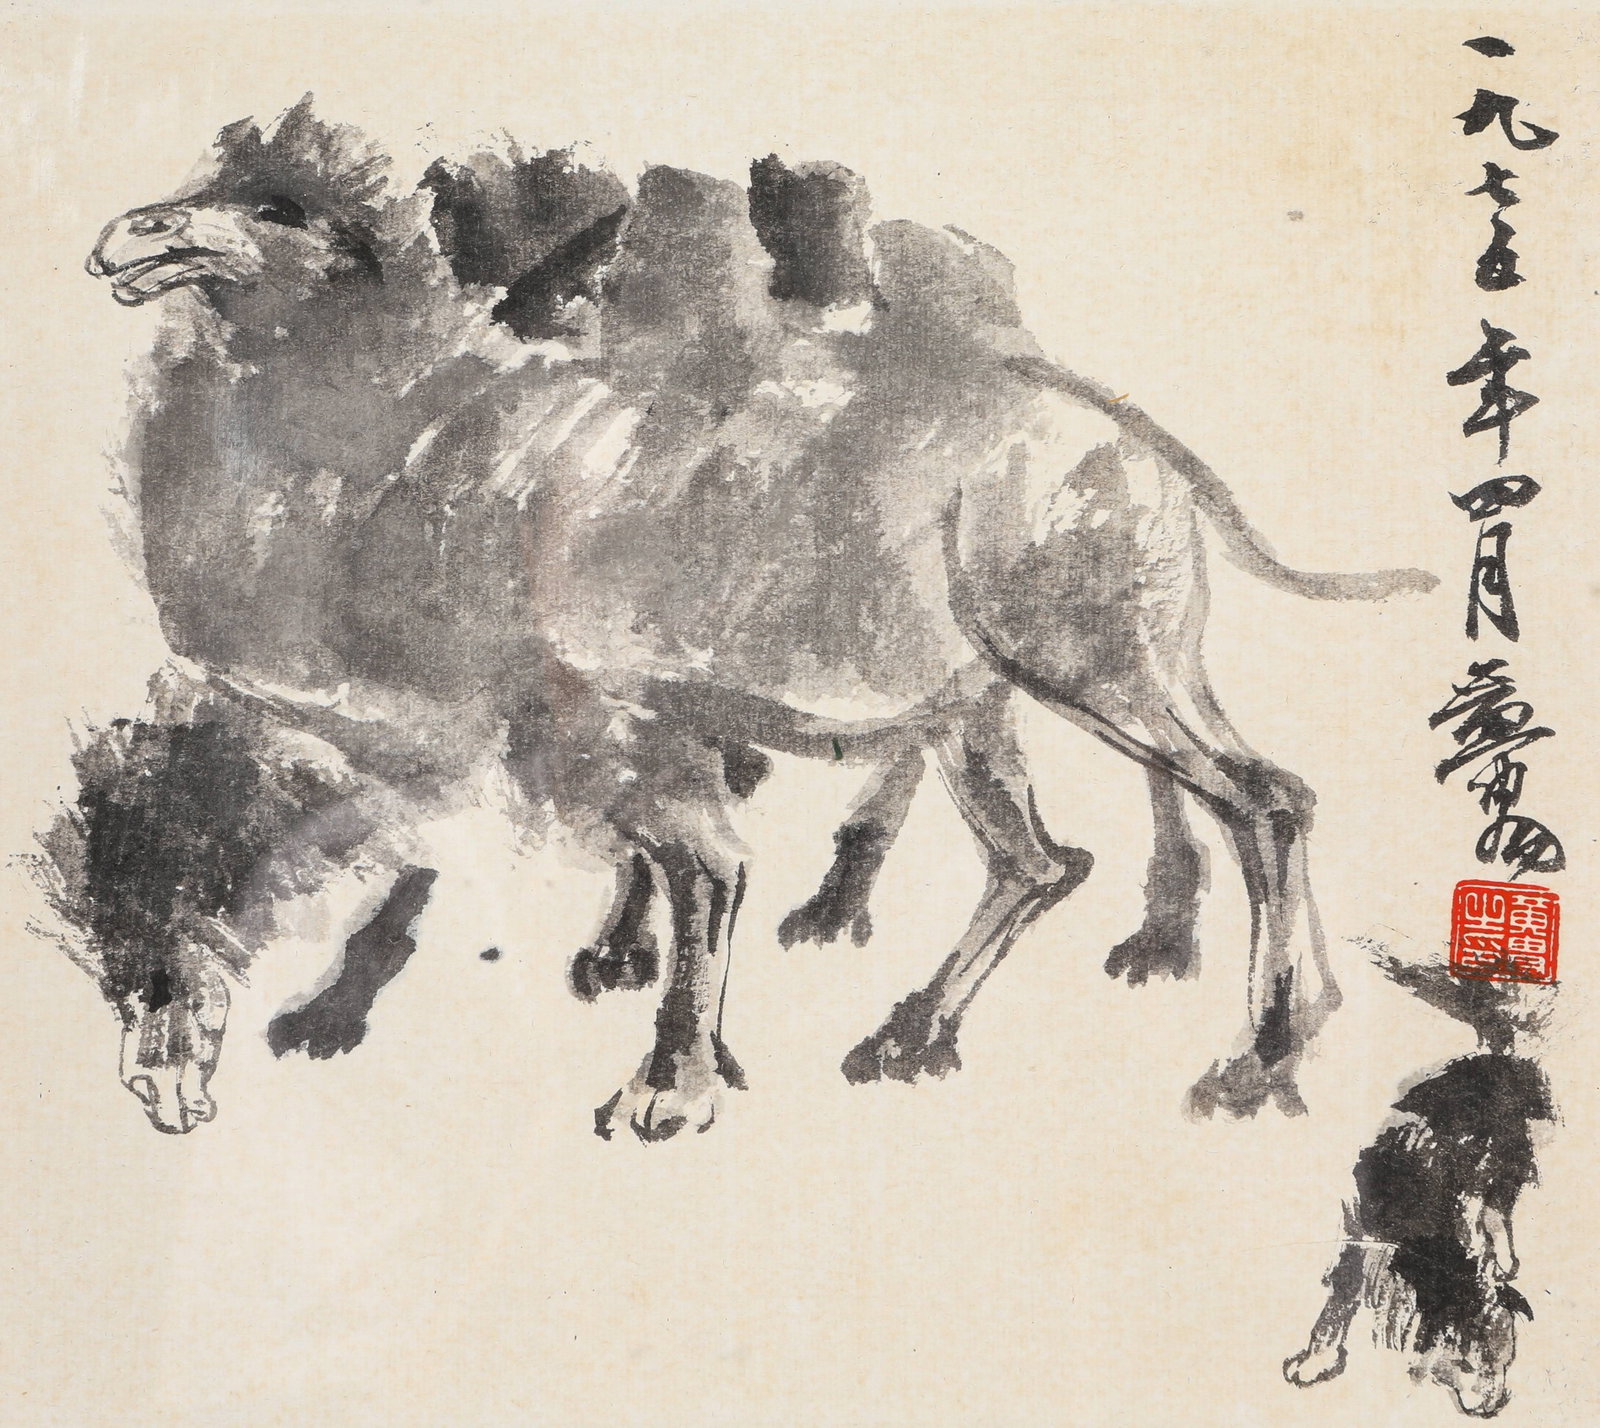 一九七五年四月黄胄
黄胄之印